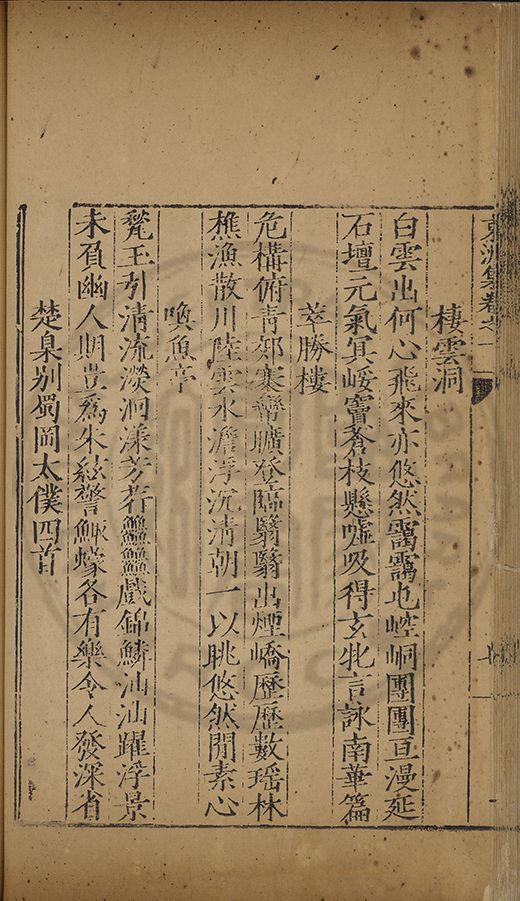 京洲集卷之一
棲雲洞
白雲出何心飛來亦悠然靄靄屯崆峒團團亘漫延
石壇元氣冥巖竇蒼枝懸噓吸得玄牝言詠南華篇
萃勝樓
危構俯青郊褰巒曠登臨翳翳出煙嶠歷歷數瑶林
樵漁散川陸雲水澹浮沉清朝一以眺悠然閒素心
喚魚亭
甃玉引清流淡洄漾芳荇鱻鱻戲錦鱗汕汕躍浮景
未負幽人期豈爲朱絃警鯫蠓各有樂令人發深省
楚臬别蜀岡太僕四首